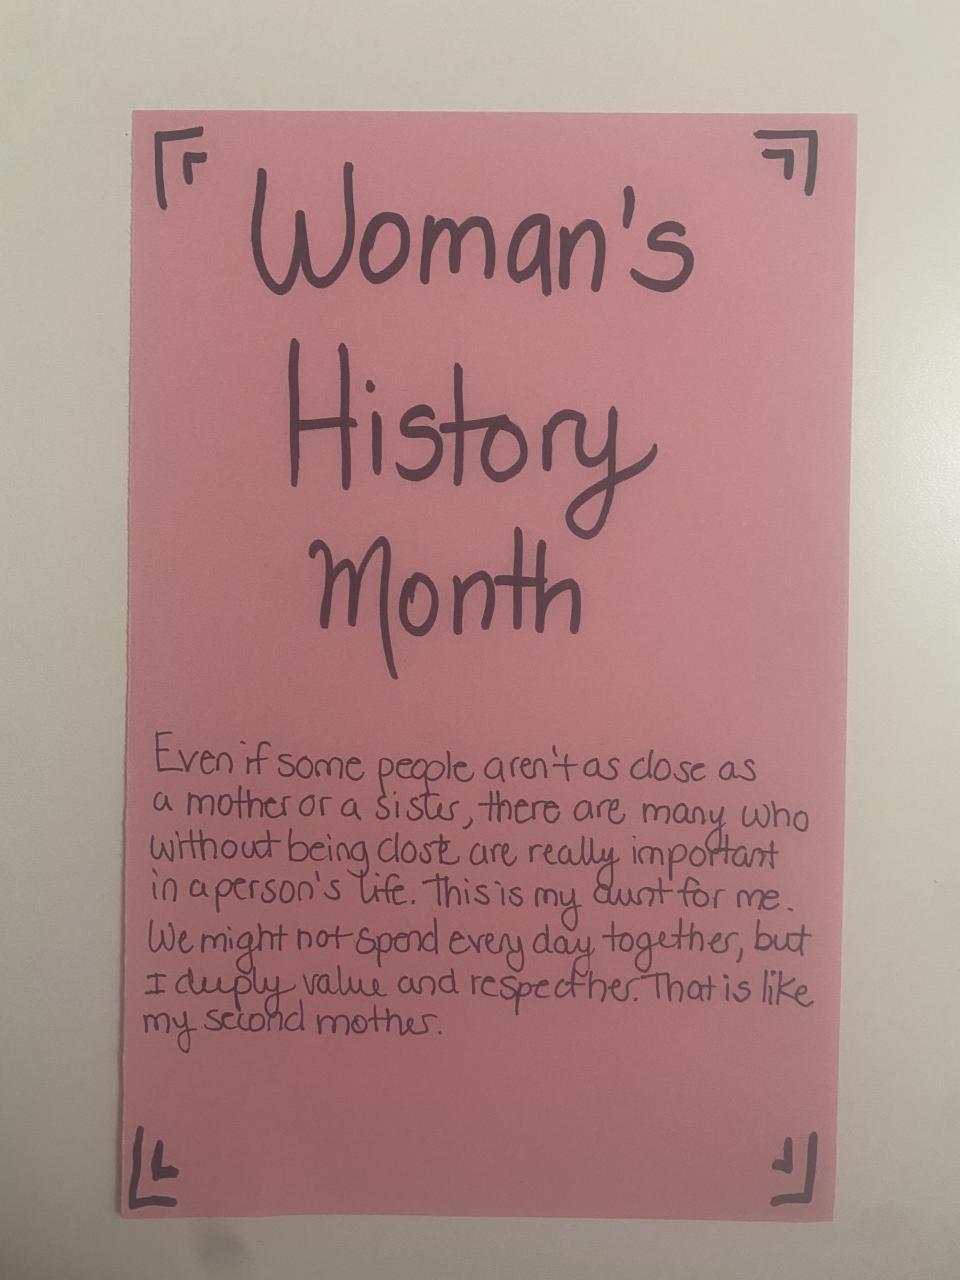 Woman's
History
Month
Even if some people aren't as close as
a mother or a sister, there are many who
without being close are really important
in a person's life. This is my aunt for me.
We might not spend every day together, but
I deeply value and respect her. That is like
my second mother.